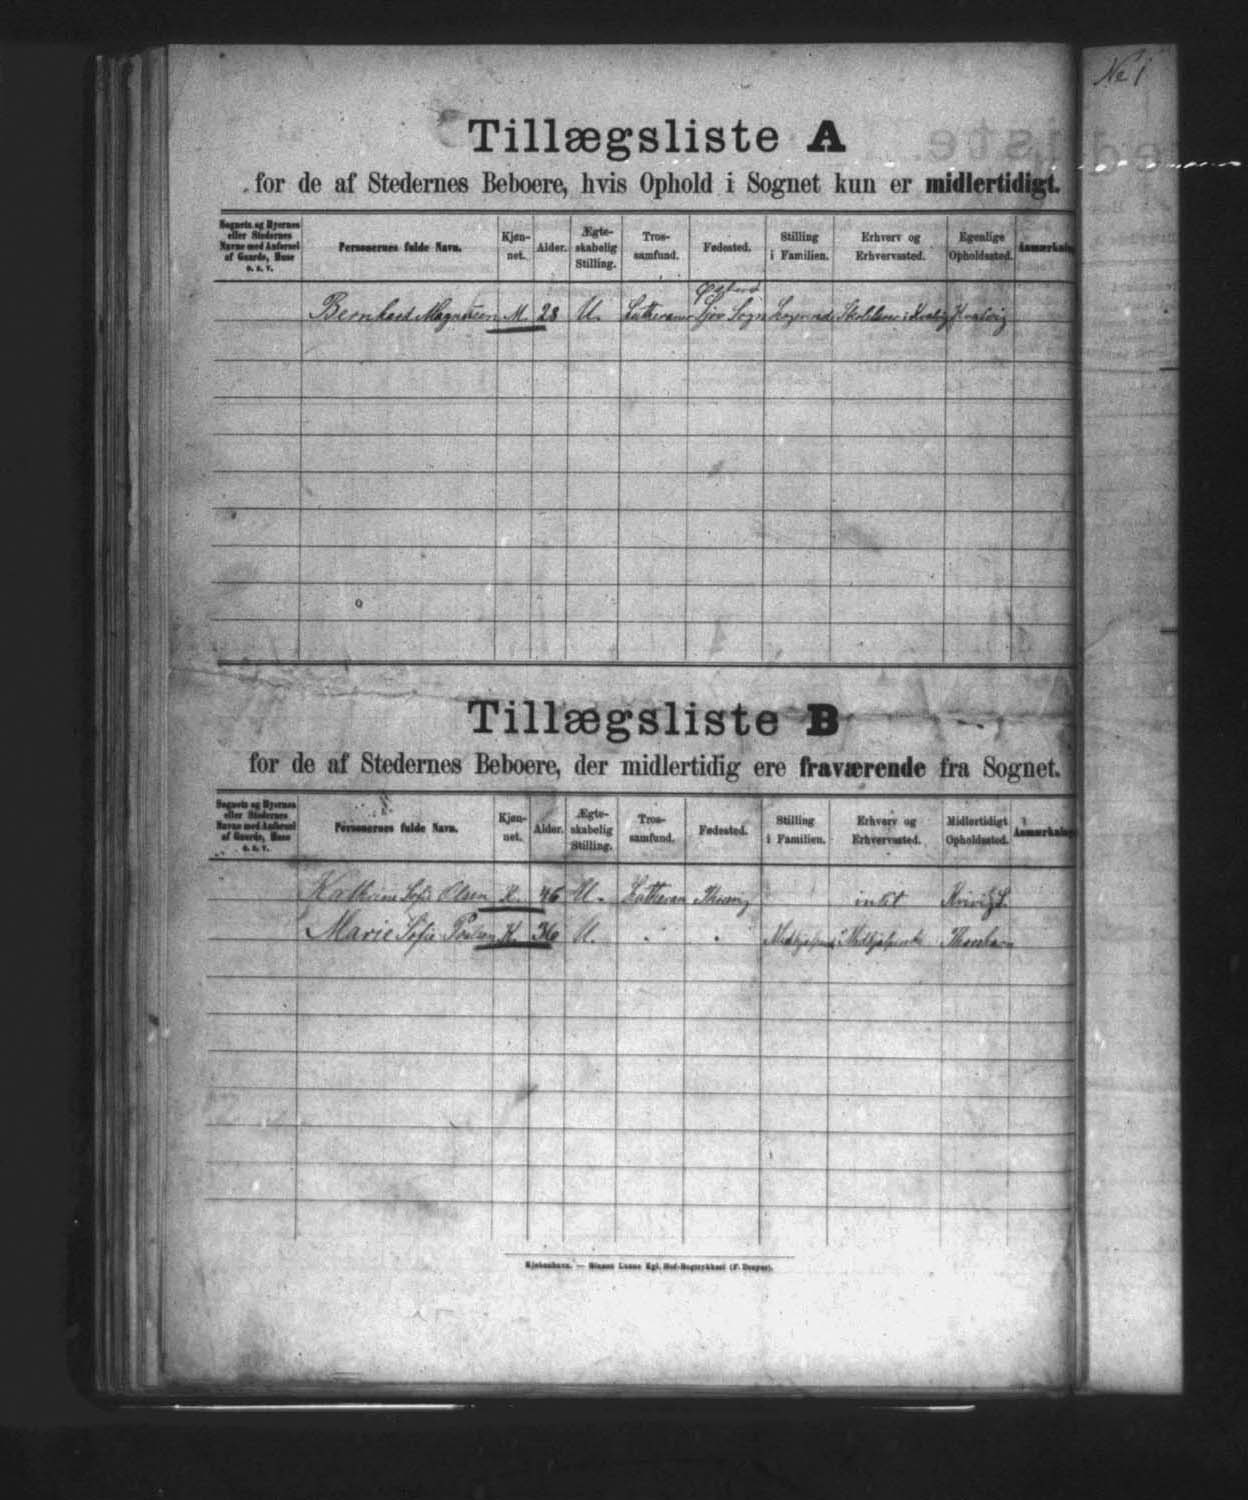 No 1
Tillægsliste A
for de af Stedernes Beboere, hvis Ophold i Sognet kun er midlertidigt.
Sognets og Byernes eller Stedernes Navne med Anførsel af Gaarde, Huse o. s. v. Personernes fulde Navn. Kjøn-net. Alder. Ægte-skabelig Stilling. Tros-samfund. Fødested. Stilling i Familien. Erhverv og Erhvervssted. Egenlige Opholdssted. Anmærkning
Bernhard Magnusen M. 28 U. Lutheraner Sjov Sogn Logerende Skolelærer i Kvalvig Kvalvig
Tillægsliste B
for de af Stedernes Beboere, der midlertidig ere fraværende fra Sognet.
Sognets og Byernes eller Stedernes Navne med Anførsel af Gaarde, Huse o. s. v. Personernes fulde Navn. Kjøn-net. Alder. Ægte-skabelig Stilling. Tros-samfund. Fødested. Stilling i Familien. Erhverv og Erhvervssted. Midlertidigt Opholdssted. Anmærkning
Kathrine Sofie Olsen K. 46 U. Lutheran intet
Marie Sofie Poulsen K. 36 U. " " Thorshavn
Kjøbenhavn. — Bianco Lunos Kgl. Hof-Bogtrykkeri (F. Dreyer).